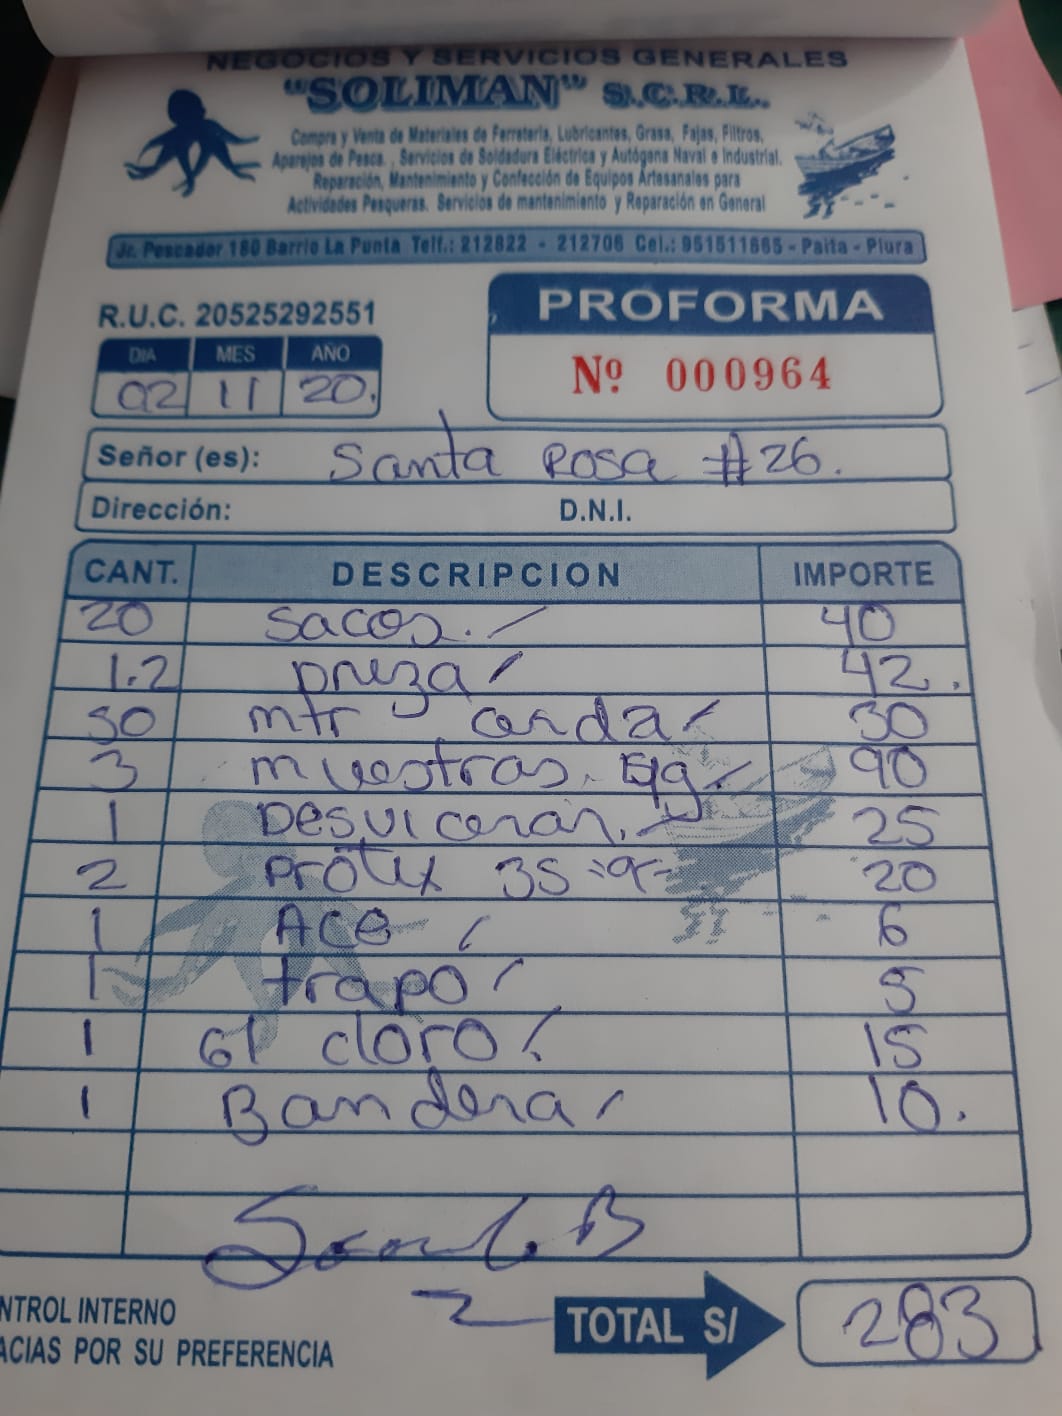 NEGOCIOS Y SERVICIOS GENERALES
"SOLIMAN" S.C.R.L.
Compra y Venta de Materiales de Ferretería, Lubricantes, Grasa, Fajas, Filtros,
Aparejos de Pesca. , Servicios de Soldadura Eléctrica y Autógena Naval e Industrial.
Reparación, Mantenimiento y Confección de Equipos Artesanales para
Actividades Pesqueras. Servicios de mantenimiento y Reparación en General
Jr. Pescador 180 Barrio La Punta Telf.: 212822 - 212706 Cel.: 951511665 - Paita - Piura
R.U.C. 20525292551
PROFORMA
Nº 000964
DIA MES AÑO
02 11 20.
Señor (es): Santa Rosa #26.
Dirección: D.N.I.
CANT. DESCRIPCION IMPORTE
20 sacos. 40
1.2 42.
50 mtr 30
3 muestras. 90
1 Desvicerar. 25
2 35 20
1 ACE 6
1 trapo 5
1 Gl cloro 15
1 Bandera 10.
NTROL INTERNO
ACIAS POR SU PREFERENCIA
TOTAL S/ 283